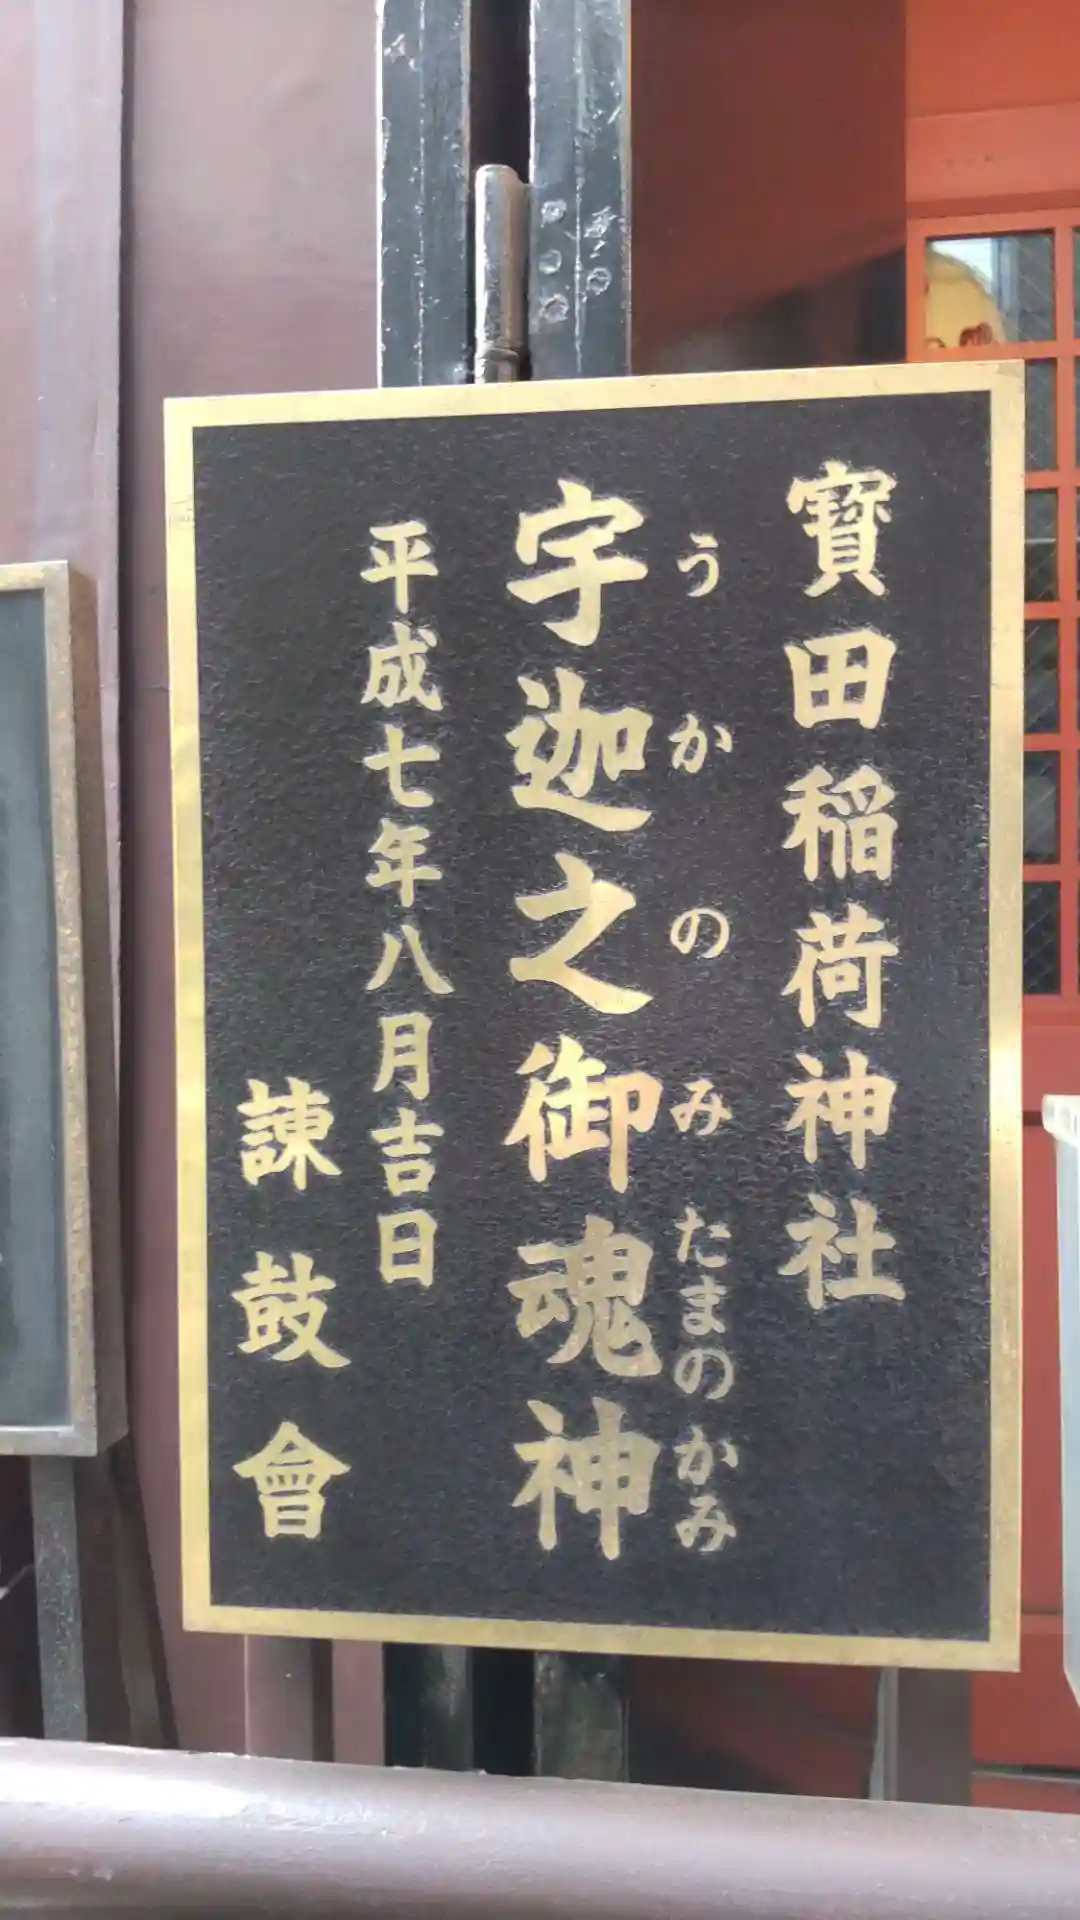 寳田稲荷神社
うかのみたまのかみ
宇迦之御魂神
平成七年八月吉日
諌鼓會